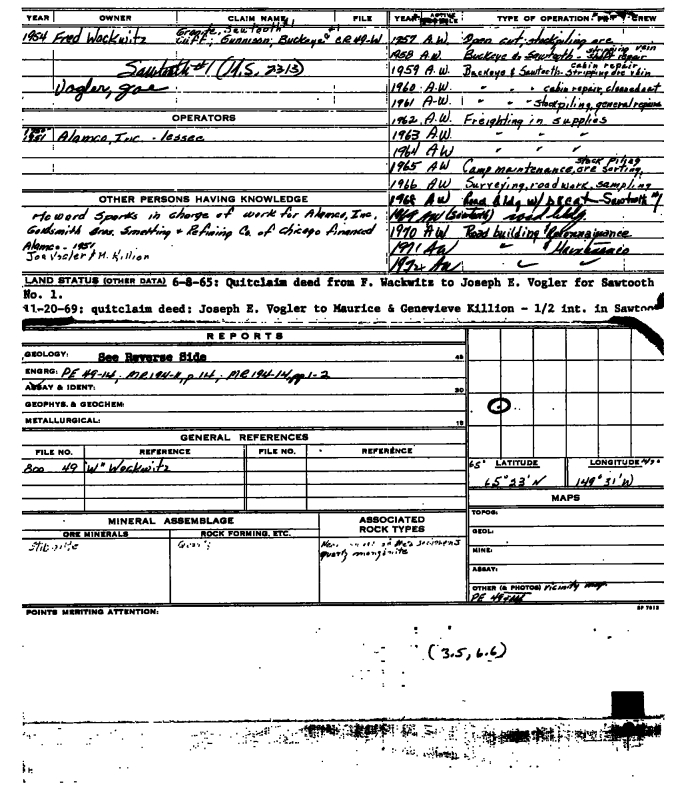 YEAR OWNER CLAIM NAME FILE YEAR ACTIVE TYPE OF OPERATION CREW
Granite, Sawtooth #1
1954 Fred Wackwitz Cliff; Gunnison; Buckeye CR 49-W 1957 A.W. Open cut; stockpiling ore
1958 A.W. Buckeye & Sawtooth - stripping vein repair
Sawtooth #1 (M.S. 2313) 1959 A.W. Buckeye & Sawtooth - stripping ore vein cabin repair,
Vogler, Joe 1960 A.W. " " " cabin repair, cleaned cut
1961 A.W. " " " stockpiling, general repairs
OPERATORS 1962 A.W. Freighting in supplies
1951 Alamco, Inc. - lessee 1963 A.W. " " "
1964 A.W. " " "
1965 A.W. Camp maintenance, ore sorting, stock piling
1966 A.W. Surveying, road work, sampling
OTHER PERSONS HAVING KNOWLEDGE 1968 AW Road bldg w/ D8 cat - Sawtooth #1
Howard Sparks in charge of work for Alamco, Inc, 1969 AW (Sawtooth) road bldg.
Goldsmith Bros. Smelting & Refining Co. of Chicago financed 1970 AW Road building & Maintenance
Alamco - 1951 1971 AW " & Maintenance
Joe Vogler & M. Killion 1972 AW
LAND STATUS (OTHER DATA) 6-8-65: Quitclaim deed from F. Wackwitz to Joseph E. Vogler for Sawtooth
No. 1.
11-20-69; quitclaim deed; Joseph E. Vogler to Maurice & Genevieve Killion - 1/2 int. in Sawtoo
REPORTS
GEOLOGY: See Reverse Side 45
ENGRG: PE 49-14; MR 194-11, p 14; MR 194-14, pp 1-2
ASSAY & IDENT: 30
GEOPHYS. & GEOCHEM:
METALLURGICAL: 15
GENERAL REFERENCES
FILE NO. REFERENCE FILE NO. REFERENCE
65° LATITUDE LONGITUDE
800 49 "W" Wackwitz
65° 23' N 149° 31' W
MAPS
MINERAL ASSEMBLAGE ASSOCIATED ROCK TYPES
ORE MINERALS ROCK FORMING, ETC.
Stibnite Quartz
quartz monzonite
TOPOG:
GEOL:
MINE:
ASSAY:
OTHER (& PHOTOS) Vicinity map
PE 49-14
POINTS MERITING ATTENTION: SP 7613
(3.5, 6.6)